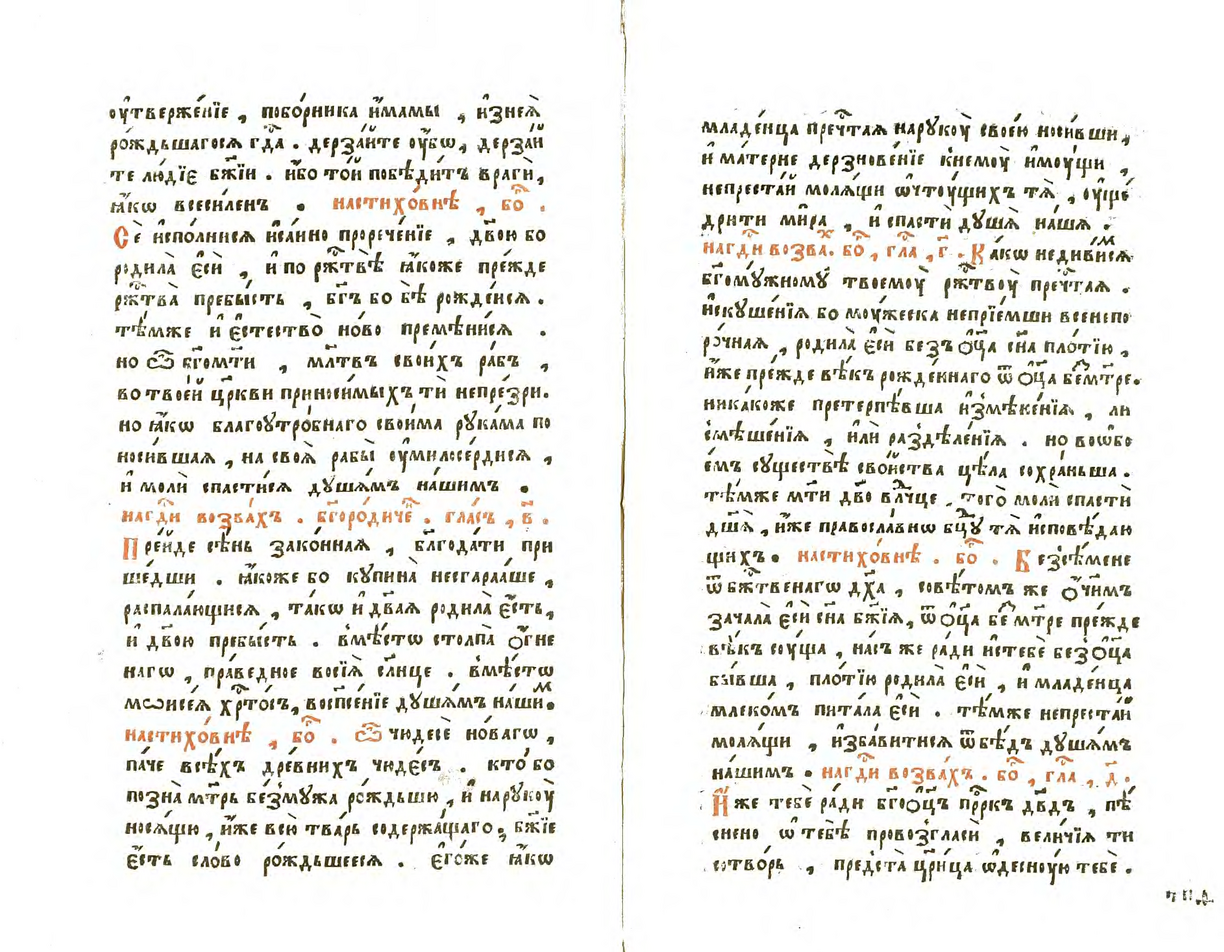 оу҆тверже́нїе , побо́рника и҆́мамы , и҆знеѧ̀
ро́ждьшагосѧ гд҇а . дерза́йте оу҆́бѡ , дерза́й
те лю́дїє бж҃їи . и҆́бо то́й побѣди́тъ враги̑ ,
ꙗ҆́кѡ всеси́ленъ . настихо́внѣ , бо҇ .
Сѐ и҆спо́лнисѧ и҆са́ино прорече́нїе , дв҃ою бо
родила̀ є҆сѝ , и҆ по рж҇твѣ̀ ꙗ҆́коже пре́жде
рж҇тва̀ пребы́сть , бг҃ъ бо бѣ̀ рожде́исѧ .
тѣ́мже и҆ є҆стество̀ но́во премѣни́сѧ .
но ѽ бг҃омт҃и , мл҃твъ свои́хъ ра́бъ ,
во твое́й цр҃кви приноси́мыхъ тѝ непре́зри .
но ꙗ҆́кѡ благоутро́бнаго свои́ма рука́ма по
носи́вшаѧ , на своѧ̀ рабы̀ оу҆милосе́рдисѧ ,
и҆ молѝ спасти́сѧ душа́мъ на́шимъ .
наг҇ди возва́хъ . бг҃оро́диче҇ . гла́съ , в҃ .
Пре́йде сѣ́нь зако́ннаѧ , блг҃ода́ти при
ше́дши . ꙗ҆́коже бо купина̀ несгара́аше ,
распала́ющисѧ , та́кѡ и҆ дв҃аѧ родила̀ є҆́сть ,
и҆ дв҃ою пребы́сть . вмѣ́стѡ столпа̀ ѻ҆́гне
нагѡ , пра́ведное восїѧ̀ сл҃нце . вмѣ́стѡ
мѡисе́ѧ хр҇то́съ , воспсе́нїе душа́мъ на́шиⷨ .
настихо́внѣ , бо҇ . ѽ чю́десе но́вагѡ ,
па́че всѣ́хъ дре́внихъ чюде́съ . кто̀ бо
позна̀ мт҃рь безму́жа ро́ждьшю , и҆ нарукоу̀
носѧ́щю , и҆́же всю̀ тва́рь содержа́щаго , бж҃їе
є҆́сть сло́во ро́ждьшеесѧ . є҆го́же ꙗ҆́кѡ
младе́нца преч҇таѧ нарукоу̀ свое́ю носи́вши ,
и҆ ма́терне дерзнове́нїе кнемоу̀ и҆моу́щи ,
непреста́й молѧ́щи ѡ҆чтоу́щихъ тѧ̀ , оу҆ще́
дрити ми́ра , и҆ спастѝ ду́шѧ на́шѧ .
наг҇ди возва . бо҇ , гла҇ , г҃ . Ка́кѡ недиви́мсѧ
бг҃ому́жному твоемоу̀ рж҇твоу̀ преч҇таѧ .
и҆скуше́нїѧ бо моу́жеска непрїе́мши всенепо
ро́чнаѧ , родила̀ є҆сѝ безъ ѻ҆ц҃а сн҃а пло́тїю ,
и҆́же пре́жде вѣ́къ рожде́ннаго ѿ ѻ҆ц҃а беⷥм҃тре .
ника́коже претерпѣ́вша и҆змѣне́нїѧ , ли
смѣше́нїѧ , и҆лѝ раздѣле́нїѧ . но вобо
е҆́мъ существѣ̀ сво́йства цѣ́ла сохра́ньша .
тѣ́мже мт҃и дв҃о вл҃чце , того̀ молѝ спастѝ
дш҃ѧ , и҆́же правосла́внѡ бц҃у тѧ̀ и҆сповѣ́даю
щихъ . настихо́внѣ . бо҇ . Безсѣ́мене
ѿ бж҃твенагѡ дх҃а , совѣ́томъ же ѻ҆́ч҃имъ
зачала̀ є҆сѝ сн҃а бж҃їѧ , ѿ ѻ҆ц҃а беⷥ м҃тре пре́жде
вѣ́къ соу́ща , на́съ же ра́ди и҆стебѐ безѻ҆ц҃а
бы́вша , пло́тїю родила̀ є҆сѝ , и҆ младе́нца
млеко́мъ пита́ла є҆сѝ . тѣ́мже непреста́й
молѧ́щи , и҆зба́витисѧ ѿбѣ́дъ душа́мъ
на́шимъ . наг҇ди возва́хъ . бо҇ , гла҇ , д҃ .
И҆́же тебѐ ра́ди бг҃оѻ҆ц҃ъ прⷪ҇ркъ дв҃дъ , пѣ́
снено ѡ҆ тебѣ̀ провозгласѝ , вели́чїѧ тѝ
сотво́рь , предста̀ цр҃и́ца ѡ҆десноу́ю тебѐ .